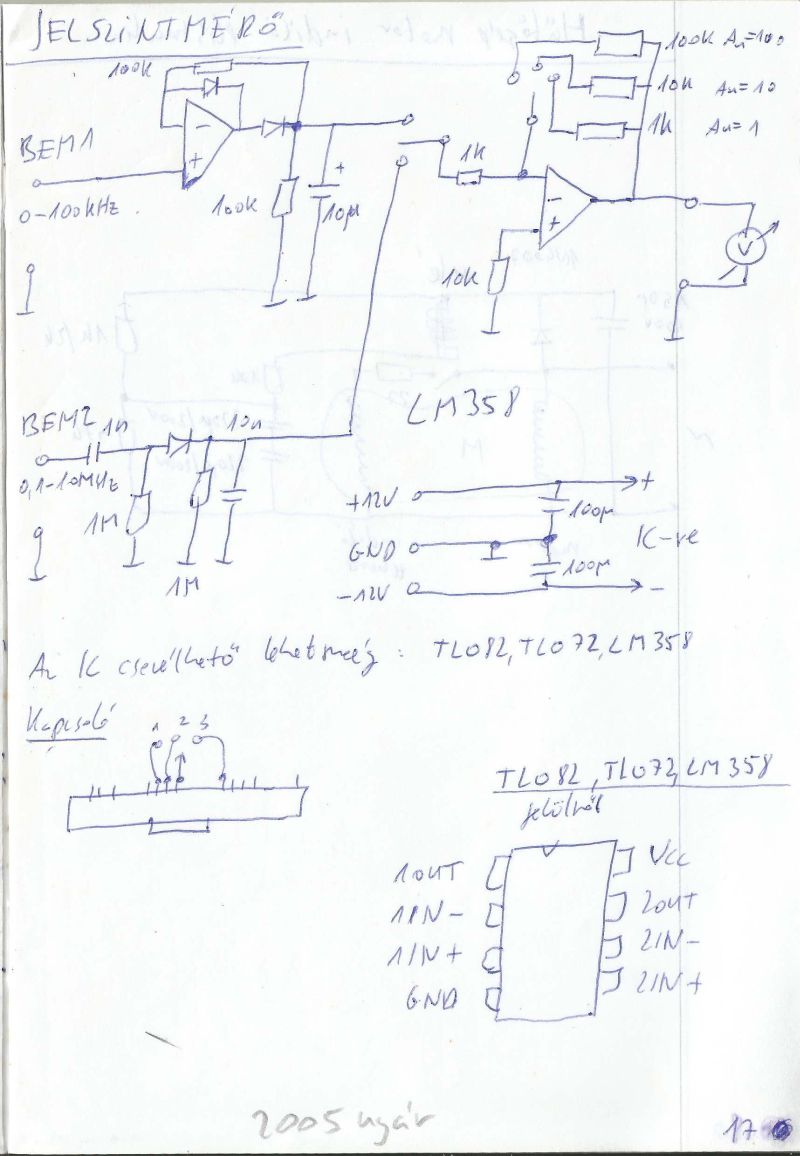 JELSZINTMÉRŐ
100K
100K Au=100
10K Au=10
1K Au=1
BEM1
0-100kHz
100K
+
10µ
1K
10K
-
+
-
+
V
BEM2
1n
10n
0,1-10MHz
1M
1M
LM358
+12V
+
100µ
GND
K-re
100µ
-12V
-
Az IC cserélhető lehetőség: TL082, TL072, LM358
Kapcsoló
1 2 3
TL082, TL072, LM358
felülről
1OUT
VCC
1IN-
2OUT
1IN+
2IN-
GND
2IN+
2005 nyár
17